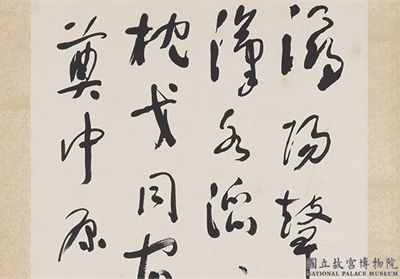 漁陽鼙
漢水滔
枕戈同
奠中原
國立故宮博物院
NATIONAL PALACE MUSEUM